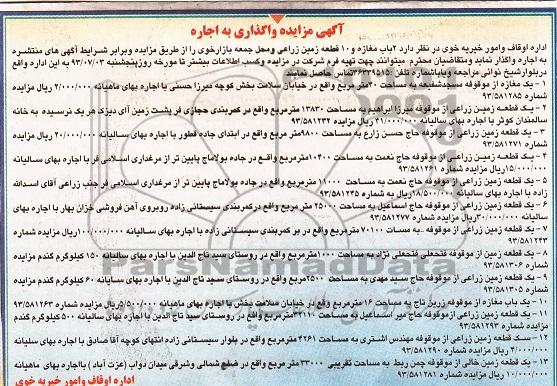 آگهی مزایده واگذاری به اجاره
اداره اوقاف وامور خیریه خوی در نظر دارد ۲باب مغازه و۱۰ قطعه زمین زراعی ومحل جمعه بازارخوی را از طریق مزایده وبرابر شرایط آگهی های منتشره
به اجاره واگذار نماید ومتقاضیان محترم میتوانند جهت تهیه فرم شرکت در مزایده وکسب اطلاعات بیشتر تا مورخه روزپنجشنبه ۹۳/۰۷/۰۳ به این اداره واقع
در بلوارشیخ نوائی مراجعه ویاباشماره تلفن :۳۶۳۳۹۵۱۵تماس حاصل نمایند
۱- یک مغازه از موقوفه مسجدشفیعیه به مساحت ۳۰متر مربع واقع در خیابان سلامت بخش کوچه میرزا حسنی با اجاره بهای ماهیانه ۲/۰۰۰/۰۰۰ ریال مزایده
شماره ۹۳/۵۸۱۲۸۵
۲- یک قطعه زمین زراعی از موقوفه میرزا ابراهیم به مساحت ۱۳۸۳۰ مترمربع واقع در کمربندی حجازی فر پشت زمین آای دیزک هر یک نرسیده به خانه
سالمندان کوثر با اجاره بهای سالیانه ۲۱/۰۰۰/۰۰۰ ریال مزایده شماره ۹۳/۵۸۱۲۳۲
۳- یک قطعه زمین زراعی از موقوفه حاج حسن زارع به مساحت ۹۸۰۰مترمربع واقع در ابتدای جاده قطور با اجاره بهای سالیانه ۲۰/۰۰۰/۰۰۰ ریال مزایده
شماره ۹۳/۵۸۱۲۷۱
۴- یک قطعه زمین زراعی از موقوفه حاج نعمت به مساحت ۱۰۴۰۰مترمربع واقع در جاده بولاماج پایین تر از مرغداری اسلامی فر با اجاره بهای سالیانه
۱۵/۰۰۰/۰۰۰ریال مزایده شماره ۹۳/۵۸۱۲۶۱
۵- یک قطعه زمین زراعی از موقوفه حاج نعمت به مساحت ۱۱۰۰۰ مترمربع واقع در جاده بولاماج پایین تر از مرغداری اسلامی فر جنب زراعی آقای اسدالله
زاده با اجاره بهای سالیانه ۱۸/۵۰۰/۰۰۰ ریال مزایده به شماره ۹۳/۵۸۱۲۴۵
۶- یک قطعه زمین زراعی از موقوفه حاج اسماعیل به مساحت ۲۵۰۰۰ متر مربع واقع درکمربندی سیستانی زاده روبروی آهن فروشی خزان بهار با اجاره بهای
سالیانه ۳۰/۰۰۰/۰۰۰ریال مزایده شماره ۹۳/۵۸۱۲۷۷
۷- یک قطعه زمین زراعی از موقوفه به مساحت ۷۰۱۰۰ مترمربع واقع در بر کمربندی سیستانی زاده با اجاره بهای سالیانه ۱۱۰/۰۰۰/۰۰۰ریال مزایده شماره
۹۳/۵۸۱۲۴۳
۸- یک قطعه زمین از موقوفه فتحعلی فتحعلی نژاد به مساحت ۱۰۰مترمربع واقع در روستای سید تاج الدین با اجاره بهای سالیانه ۱۵۰ کیلوگرم گندم مزایده
شماره ۹۳/۵۸۱۳۰۶
۹- یک قطعه زمین زراعی از موقوفه حاج سید مهدی به مساحت ۲۵۰۰مترمربع واقع در روستای سید تاج الدین با اجاره بهای سالیانه ۶۰ کیلوگرم گندم مزایده
شماره ۹۳/۵۸۱۳۰۵
۱۰- یک باب مغازه از موقوفه زرین تاج به مساحت ۱۶مترمربع واقع در خیابان سلامت بخش با اجاره بهای ماهیانه ۵/۵۰۰/۰۰۰ریال مزایده شماره ۹۳/۵۸۱۲۶۳
۱۱- یک قطعه زمین زراعی از موقوفه حاج میر اسماعیل به مساحت ۳۲۰۱۰مترمربع واقع در روستای سید تاج الدین با اجاره بهای سالیانه ۵۰۰ کیلوگرم گندم
مزایده شماره ۹۳/۵۸۱۲۹۳
۱۲- یک قطعه زمین زراعی از موقوفه مهندس اشتری به مساحت ۴۲۶۱مترمربع واقع در بلوار سیستانی زاده انتهای کوچه آقا صادق با اجاره بهای سلیانه
۲/۰۰۰/۰۰۰ریال مزایده شماره ۹۳/۵۸۱۲۹۰
۱۳- یک قطعه زمین خالی از موقوفه چمن ربط به مساحت تقریبی ۳۳۰۰۰ مترمربع واقع در ضلع شمالی وشرقی میدان دواب (عزت آباد) بااجاره بهای ماهیانه
۱۰/۰۰۰/۰۰۰ریال مزایده شماره ۹۳/۵۸۱۲۸۱
اداره اوقاف وامور خیریه خوی
ParsNamadData